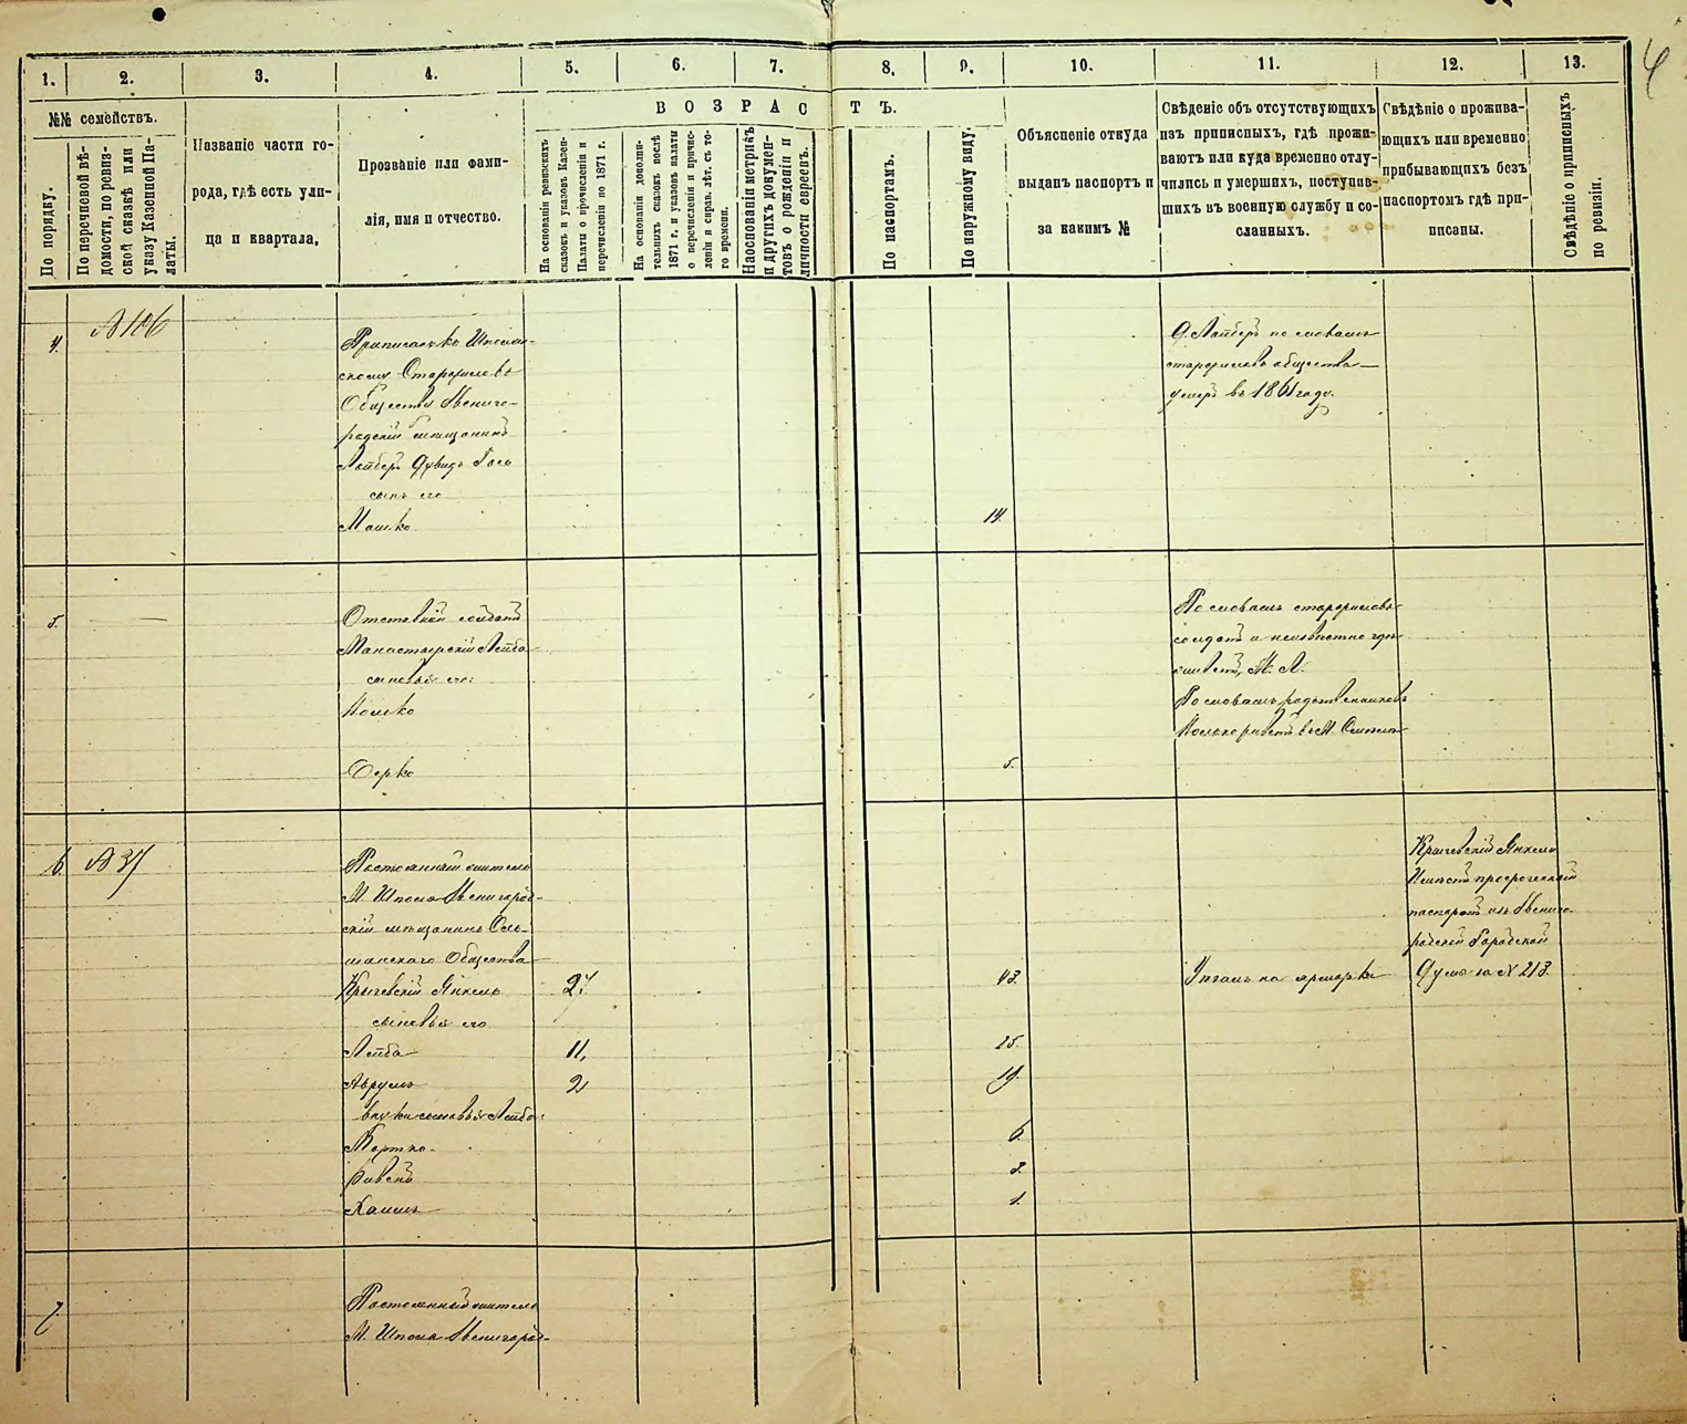 4
1. 2. 3. 4. 5. 6. 7. 8. 9. 10. 11. 12. 13.
№№ семействъ.
По порядку.
По перечневой вѣ-
домости, по ревиз-
ской сказкѣ или
указу Казенной Па-
латы.
Названіе части го-
рода, гдѣ есть ули-
ца и квартала.
Прозваніе или фами-
лія, имя и отчество.
ВОЗРАСТЪ.
На основаніи ревизскихъ
сказокъ и указовъ Казен.
Палаты о причисленіи и
перечисленіи по 1871 г.
На основаніи дополни-
тельныхъ сказокъ послѣ
1871 г. и указовъ палаты
о перечисленіи и причис-
леніи и справ. лѣт. съ то-
го времени.
На основаніи метрикъ
и другихъ докумен-
товъ о рожденіи и
личности евреевъ.
По паспортамъ.
По наружному виду.
Объясненіе откуда
выданъ паспортъ и
за какимъ №
Свѣденіе объ отсутствующихъ
изъ приписныхъ, гдѣ прожи-
ваютъ или куда временно отлу-
чились и умершихъ, поступив-
шихъ въ военную службу и со-
сланныхъ.
Свѣдѣніе о прожива-
ющихъ или временно
прибывающихъ безъ
паспортомъ гдѣ при-
писаны.
Свѣдѣніе о приписныхъ
по ревизіи.
4. №106
Обществу Звениго-
родскій мѣщанинъ
сынъ его
Мошко 14.
по словамъ
общества
умеръ въ 1861 году.
5. —
Отставной солдатъ
Манастырскій Лейба
сыновья его:
Іосько
Берко 5.
По словамъ
солдатъ и неизвѣстно гдѣ
По словамъ родственниковъ
6. №37
Постоянный житель
М. Шпола Звенигород-
скій мѣщанинъ Оль-
шанскаго Общества
Крычевскій Янкель 27. 43. Уѣхалъ на ярмарку
сыновья его
Лейба 11. 25.
Аврумъ 2 19.
внуки сыновья Лейбы:
Мортко 6.
Рувенъ 3.
Хаимъ 1.
Крычевскій Янкель
Имѣетъ просроченный
паспортъ изъ Звениго-
родской Городской
Думы за № 213.
7.
Постоянный житель
М. Шпола Звенигород-